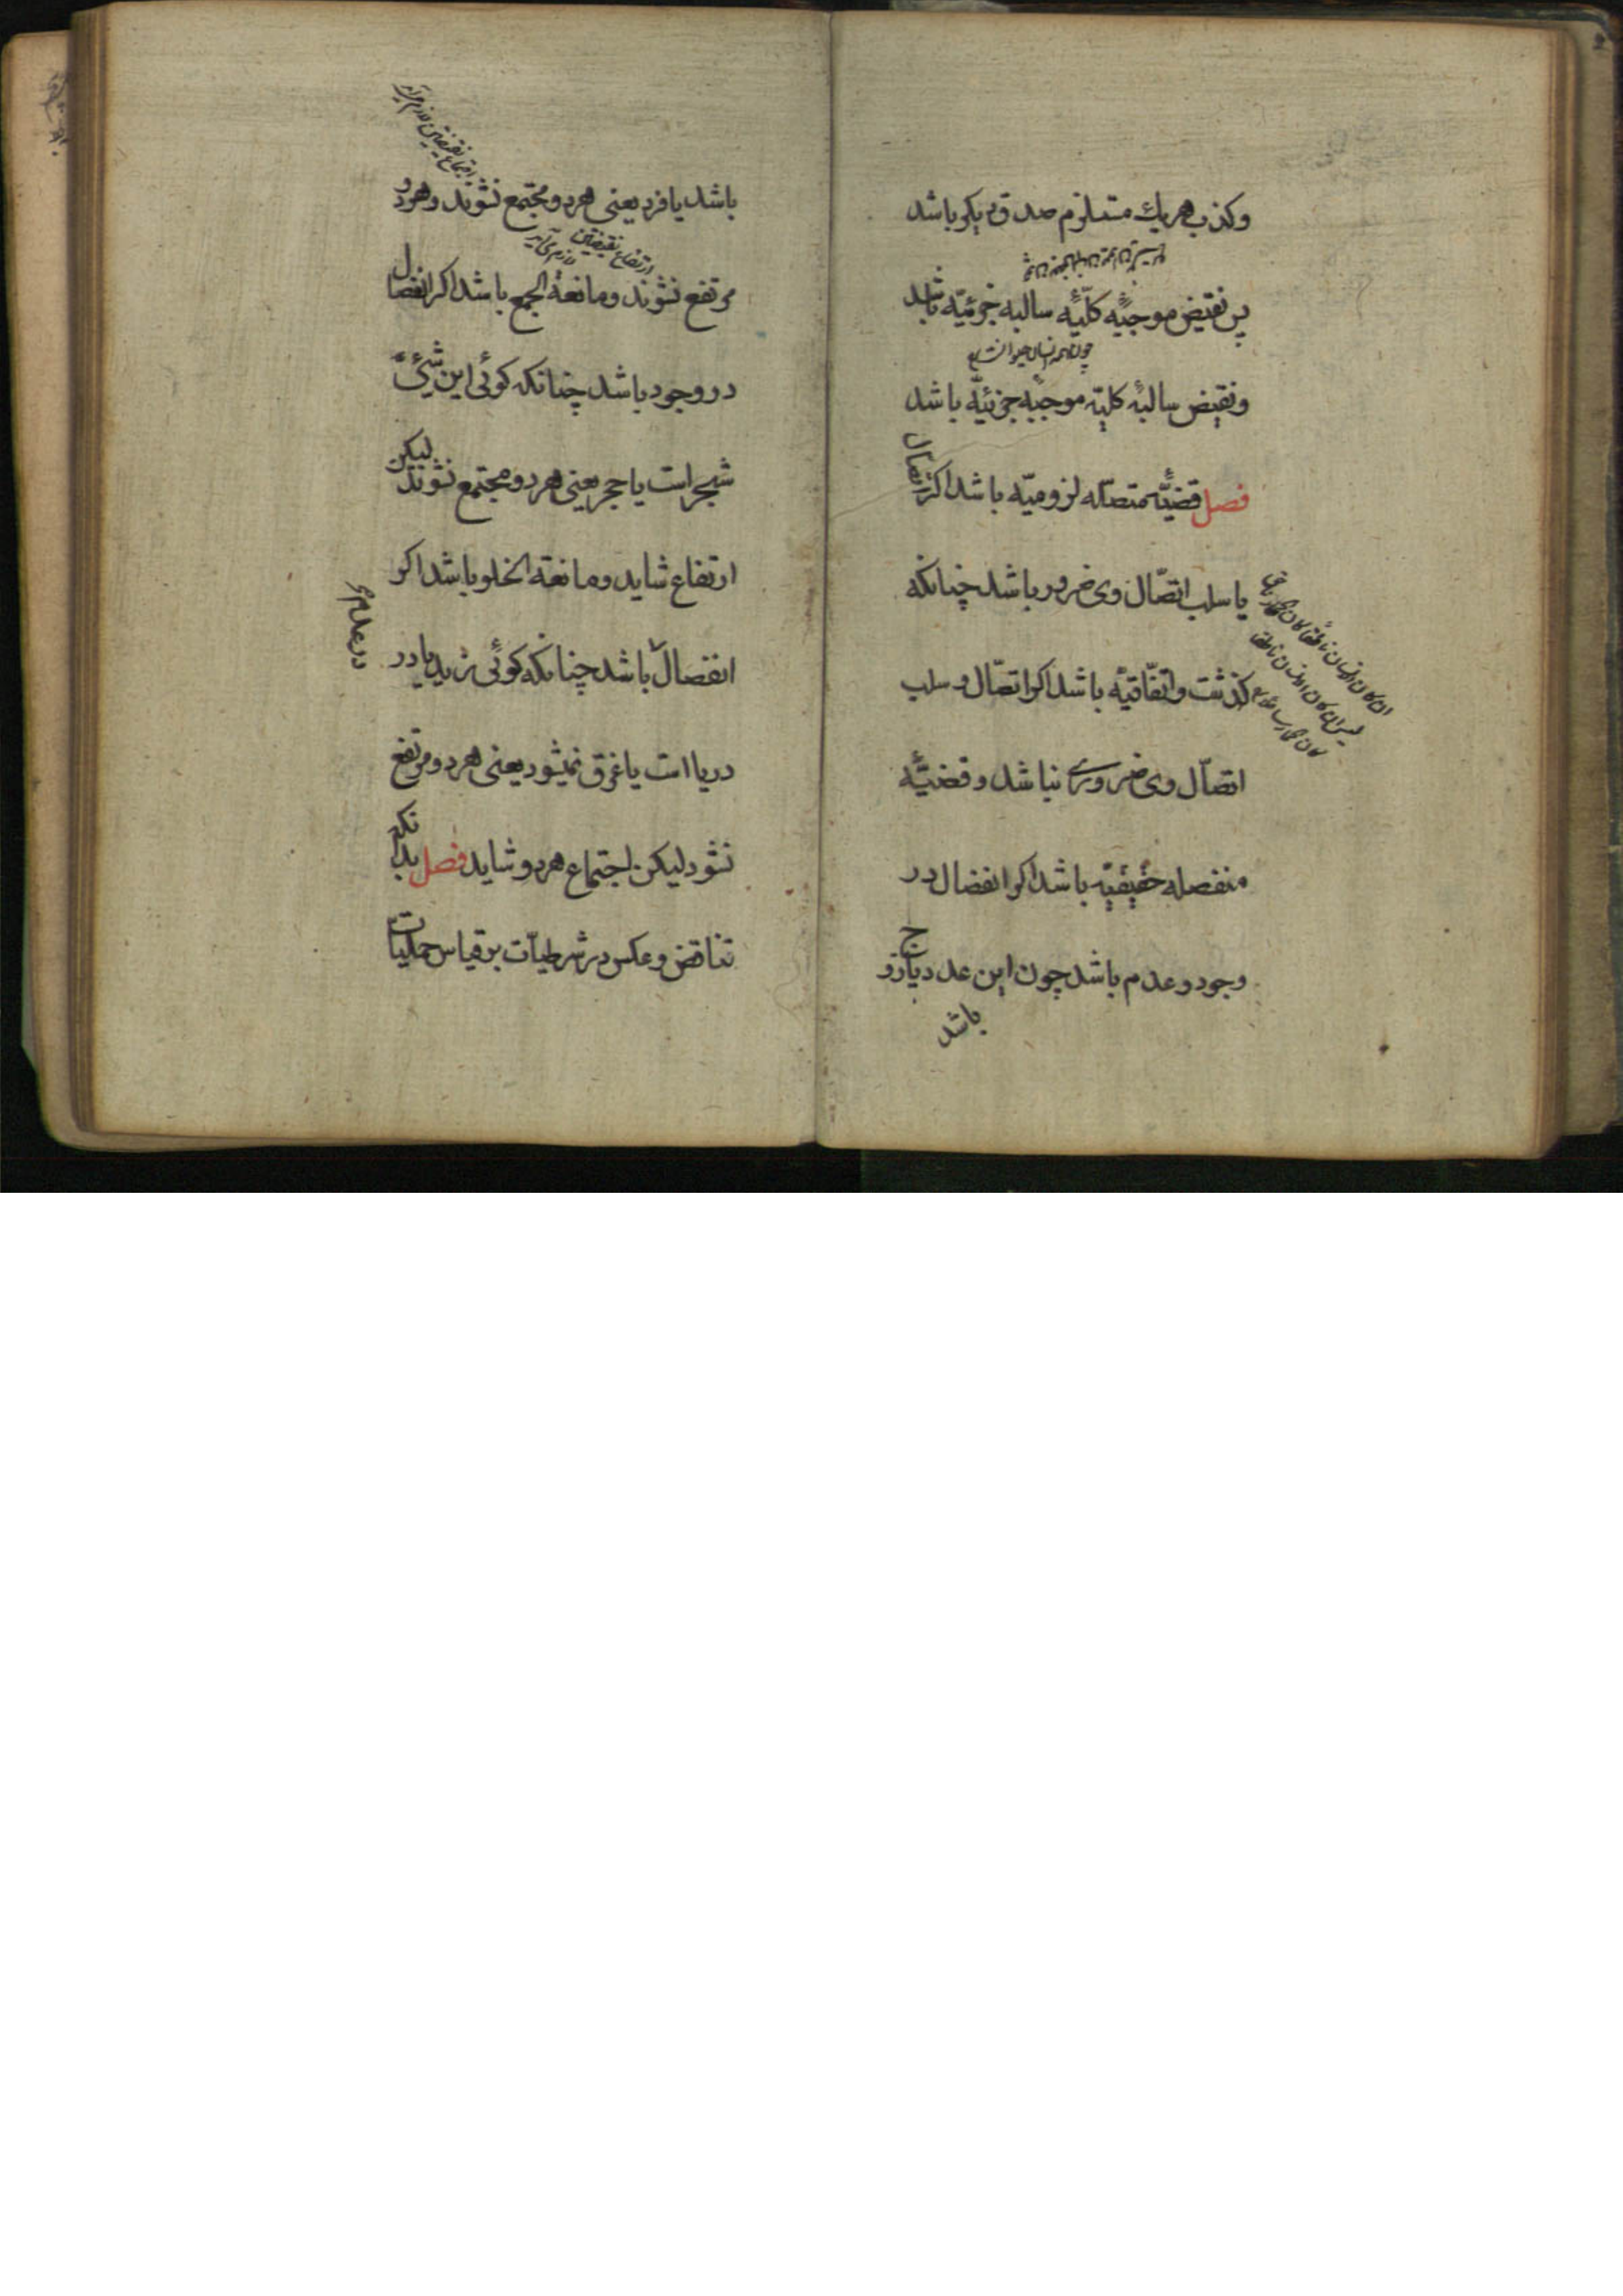 وکذب هر یک مستلزم صدق دیگر باشد
پس نقیض موجبۀ کلیّۀ سالبه جزئیّه باشد
ونقیض سالبۀ کلیّه موجبۀ جزئیّه باشد
فصل قضیّۀ متصله لزومیّه باشد اکر اتصال
یا سلب اتصّال وی ضرور باشد چنانکه
کذشت واتفّاقیّه باشد اکر اتصّال و سلب
اتصّال وی ضروری نباشد و قضیّۀ
منفصله حقیقیّه باشد اکر انفصال در
وجود و عدم باشد چون این عدد یا زوج
باشد
باشد یا فرد یعنی هر دو مجتمع نشوند وهر دو
اجتماع نقیضین لازم می آید
مرتفع نشوند ومانعة الجمع باشد اکر انفصال
ارتفاع نقیضین لازم می آید
در وجود باشد چنانکه کوئی این شیٔ
شجر است یا حجر یعنی هر دو مجتمع نشوند لیکن
ارتفاع شاید ومانعة الخلو باشد اکر
در عدم
انفصال باشد چنانکه کوئی زید یا در
دریا است یا غرق نمیشود یعنی هر دو مرتفع
نشود لیکن اجتماع هر دو شاید فصل بدانکه
تناقض وعکس در شرطیات بر قیاس حملیات